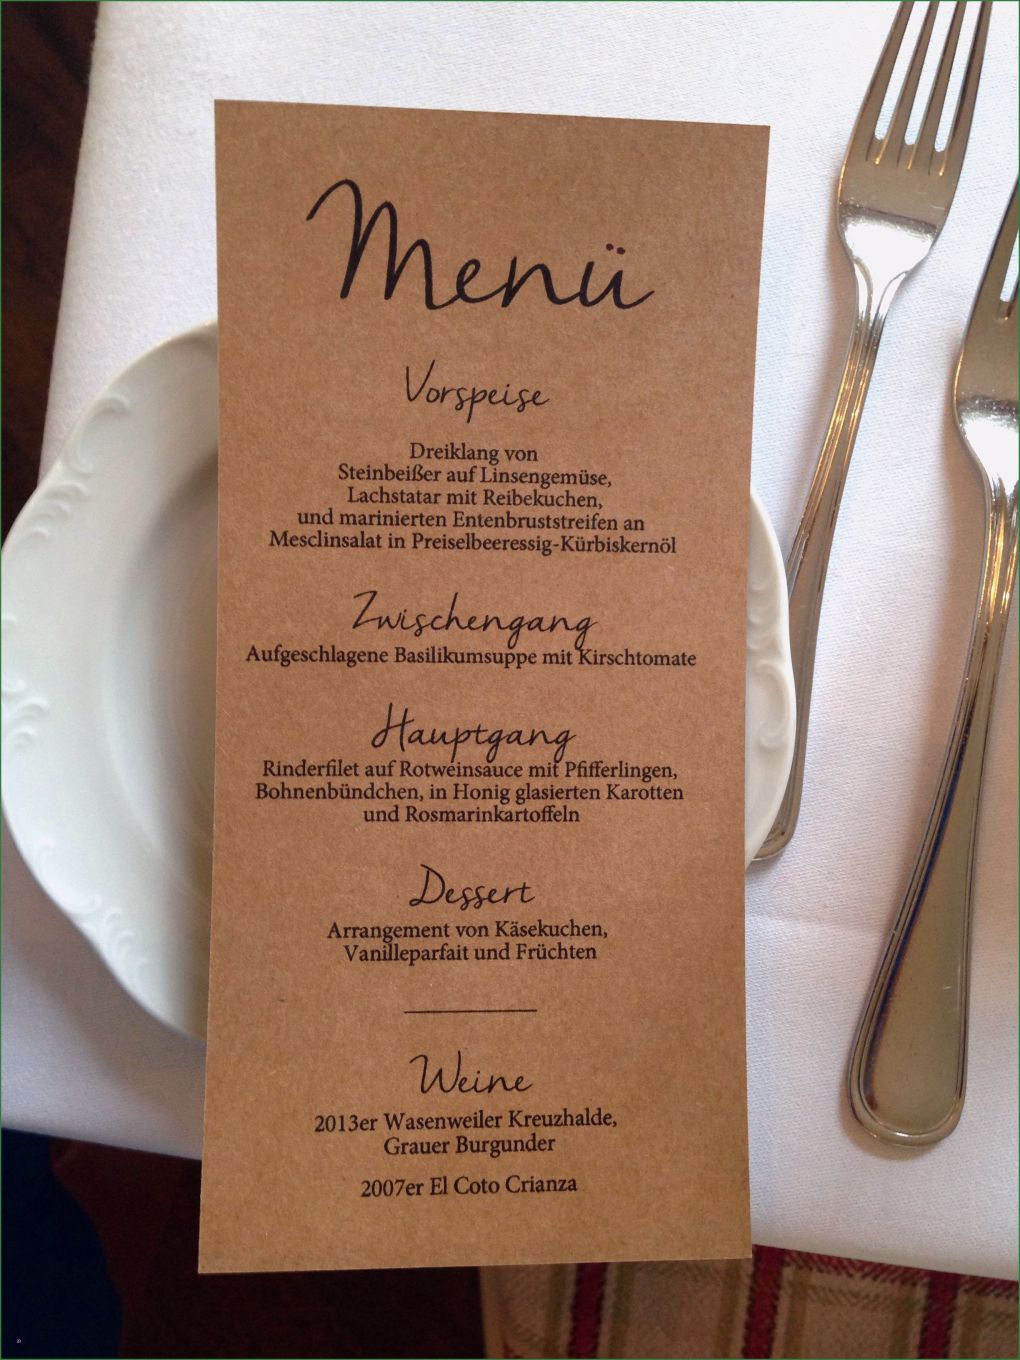 Menü
Vorspeise
Dreiklang von
Steinbeißer auf Linsengemüse,
Lachstatar mit Reibekuchen,
und marinierten Entenbruststreifen an
Mesclinsalat in Preiselbeeressig-Kürbiskernöl
Zwischengang
Aufgeschlagene Basilikumsuppe mit Kirschtomate
Hauptgang
Rinderfilet auf Rotweinsauce mit Pfifferlingen,
Bohnenbündchen, in Honig glasierten Karotten
und Rosmarinkartoffeln
Dessert
Arrangement von Käsekuchen,
Vanilleparfait und Früchten
Weine
2013er Wasenweiler Kreuzhalde,
Grauer Burgunder
2007er El Coto Crianza